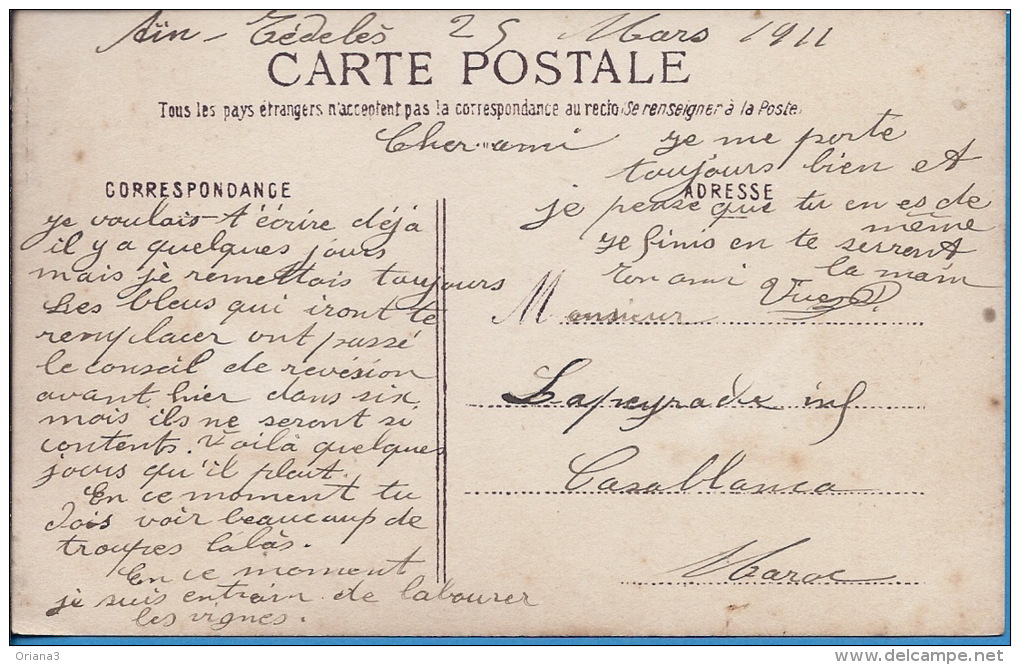 Aïn-Tédelès 25 Mars 1911
CARTE POSTALE
Tous les pays étrangers n'acceptent pas la correspondance au recto (Se renseigner à la Poste)
CORRESPONDANCE
Cher ami
je voulais t'écrire déjà
il y a quelques jours
mais je remettais toujours
Les bleus qui iront te
remplacer ont passé
le conseil de révision
avant hier dans six
mois ils ne seront si
contents. Voilà quelques
jours qu'il pleut.
En ce moment tu
dois voir beaucoup de
troupes làlàs.
En ce moment
je suis entrain de labourer
les vignes.
ADRESSE
je me porte
toujours bien et
je pense que tu en es de
même
je finis en te serrent
la main
Ton ami
Monsieur
Lapeyrade inf
Casablanca
Maroc
Oriana3
www.delcampe.net